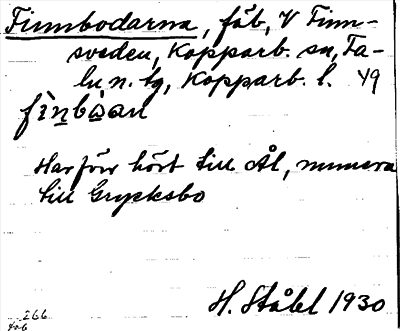 Finnbodarna, fäb, V Finn-
sveden, Kopparb. sn, Fa-
lu n. tg, Kopparb. l. 49
fìnbåan
Har förr hört till Ål, numera
till Grycksbo
H. Ståhl 1930
266